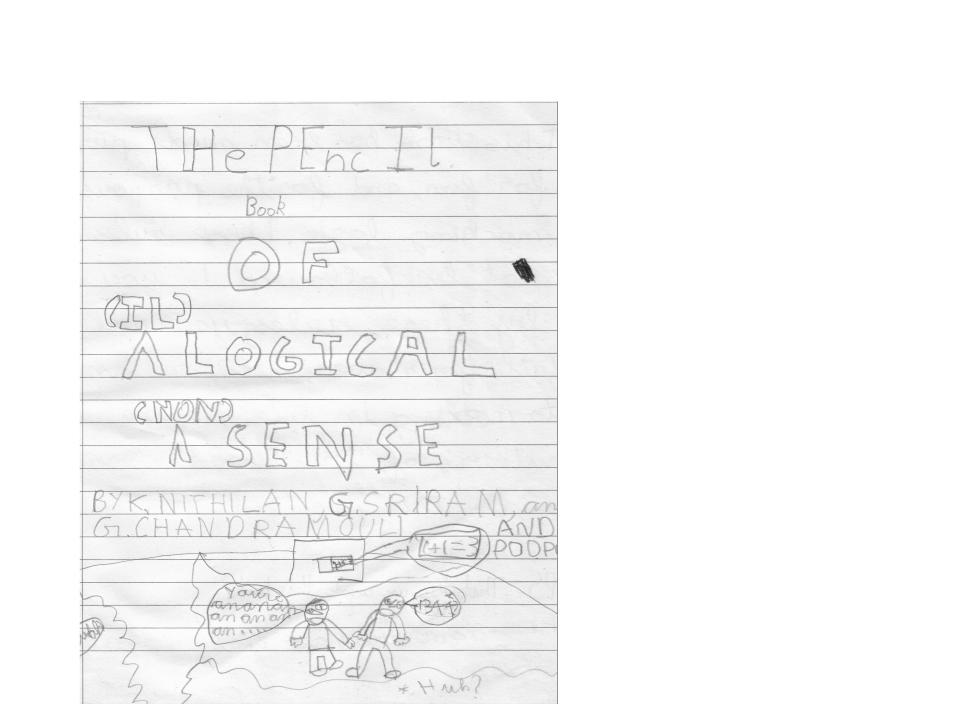 THe PEncIl
Book
OF
(IL)
Λ LOGICAL
(NON)
Λ SENSE
BY K, NITHILAN, G.SRIRAM, an
G.CHANDRAMOULI AND
POOP
1+1=3
You're
ananan
an anan
an....
BAA
* Huh?